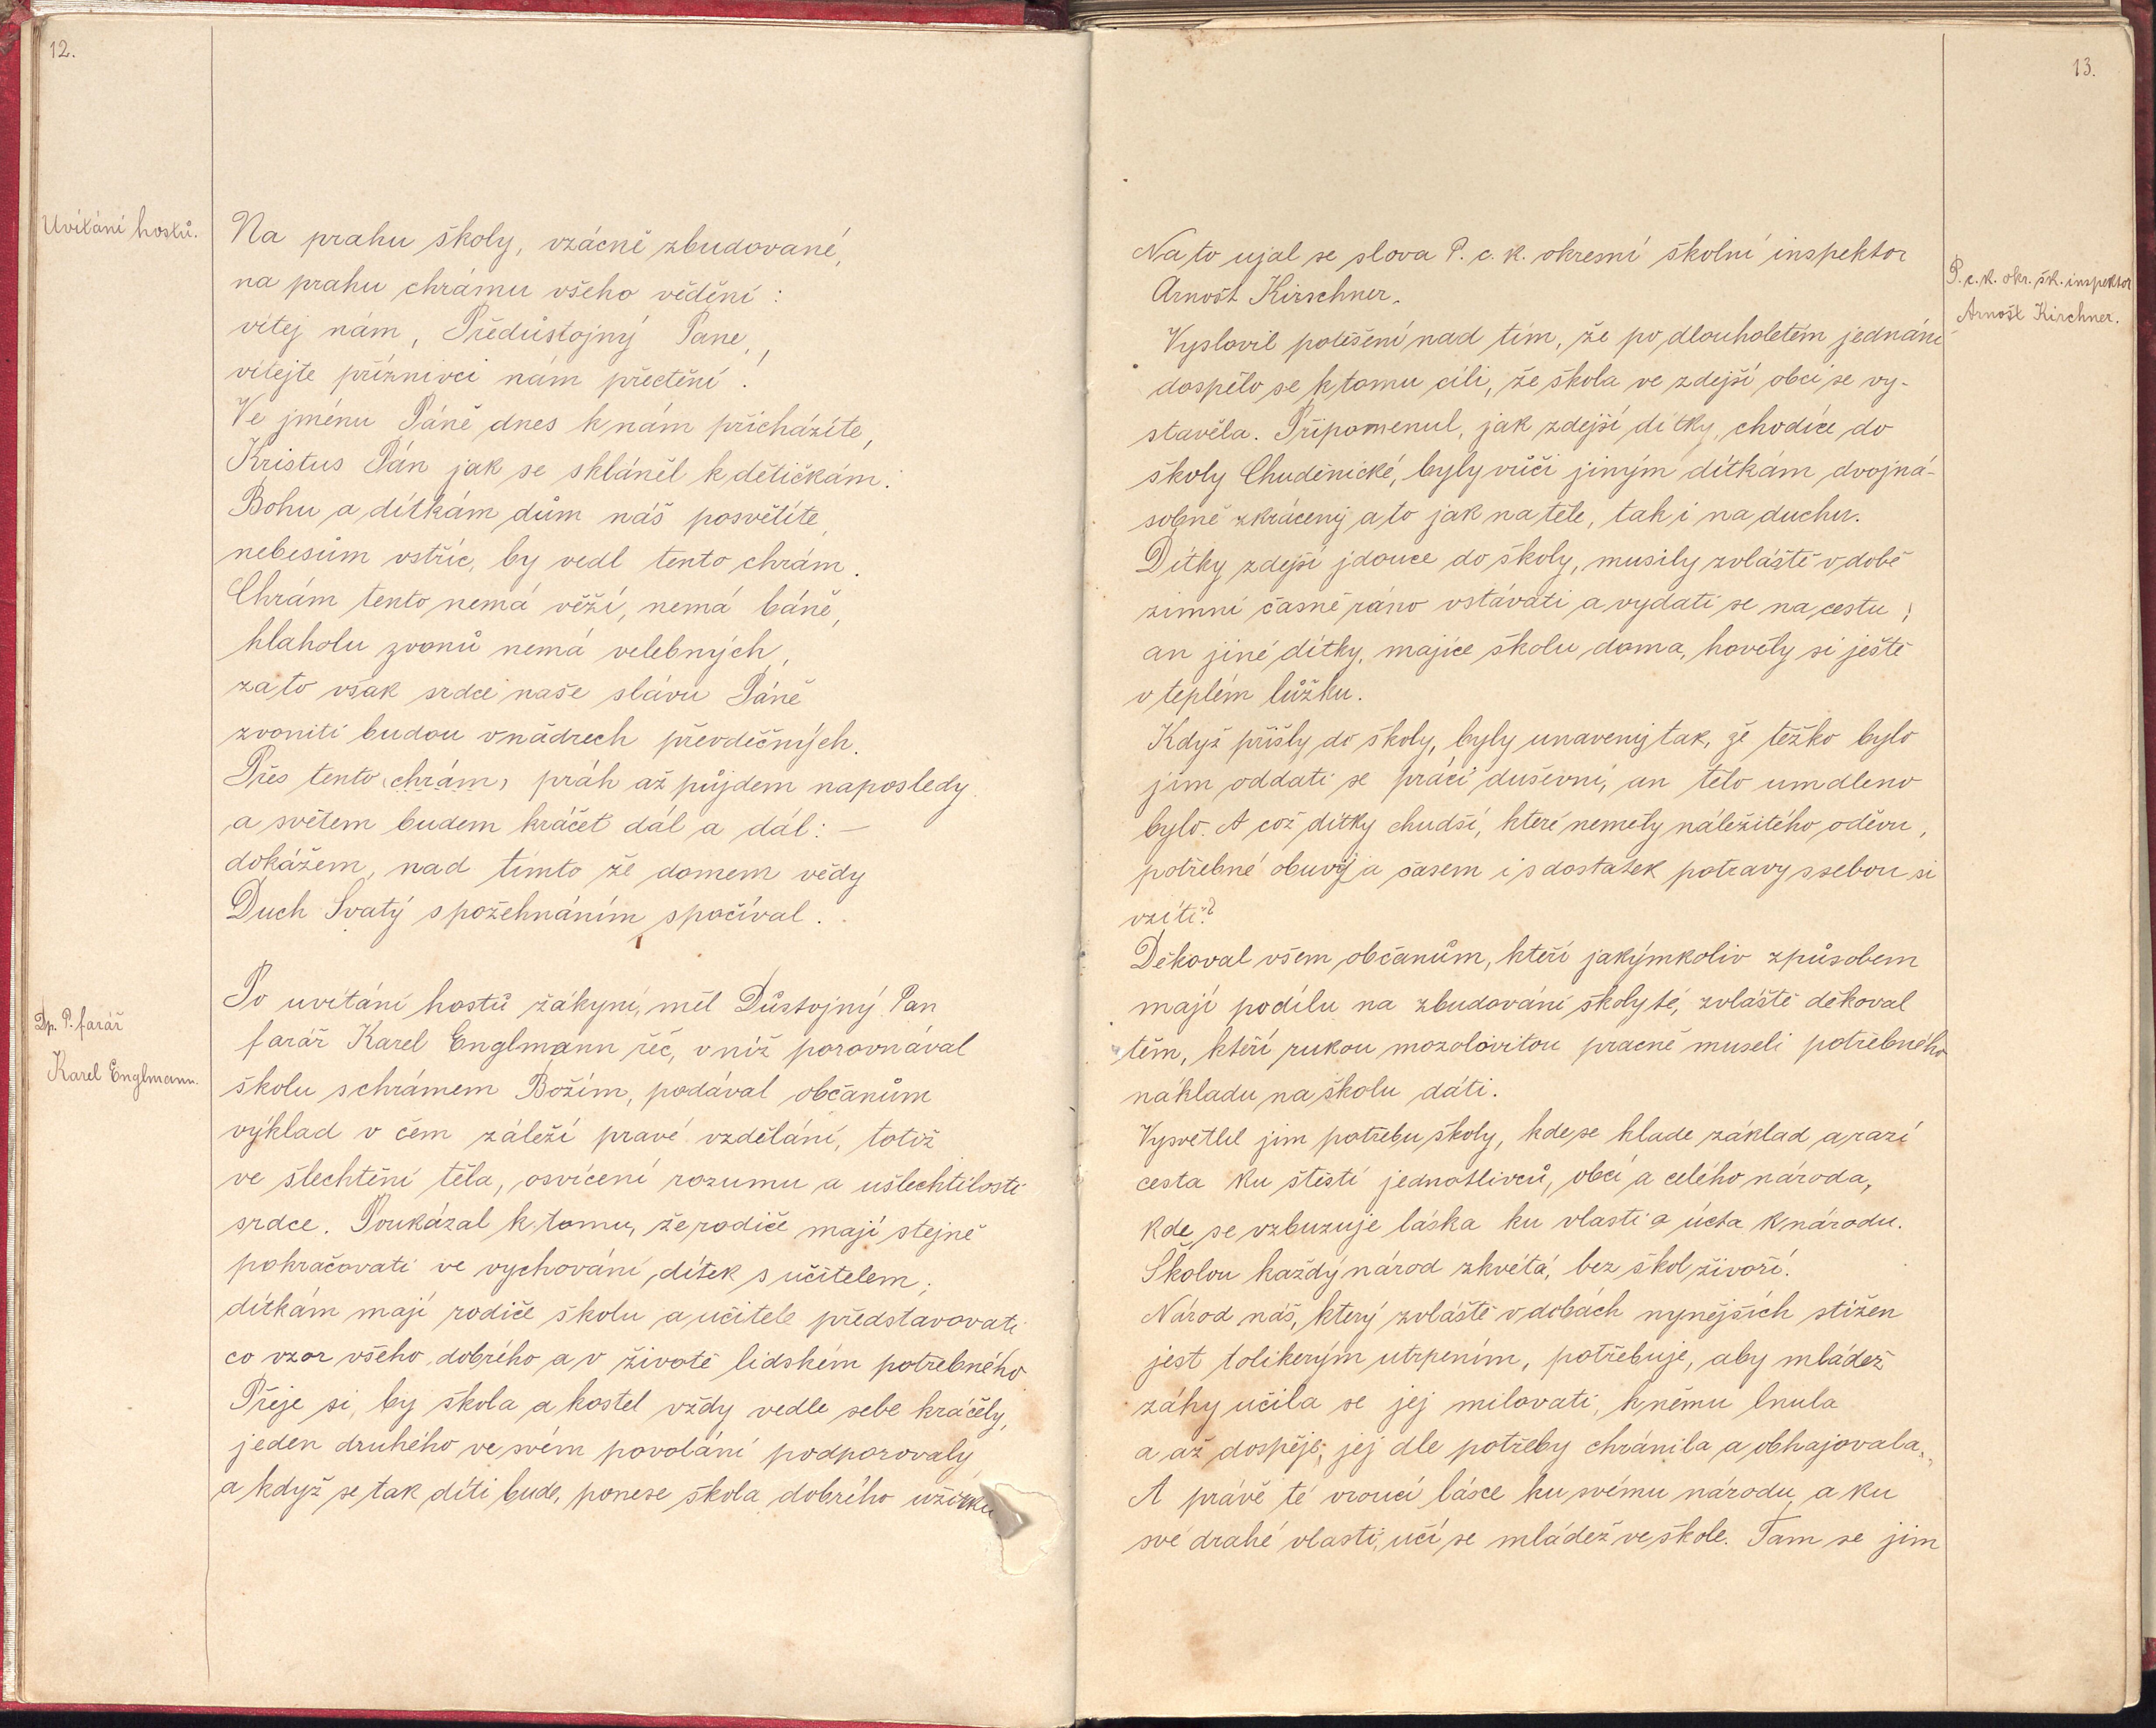 12.
Uvítání hostů.
Na prahu školy, vzácně zbudované,
na prahu chrámu všeho vědění :
vítej nám, Předůstojný Pane,
vítejte příznivci nám přectění !
Ve jménu Páně dnes k nám přicházíte,
Kristus Pán jak se skláněl k dětičkám :
Bohu a dítkám dům náš posvětíte,
nebesům vstříc, by vedl tento chrám.
Chrám tento nemá věží, nemá báně,
hlaholu zvonů nemá velebných,
zato však srdce naše slávu Páně
zvoniti budou v nádrech převděčných.
Přes tento (chrám) práh až půjdem naposledy
a světem budem kráčet dál a dál : —
dokážem, nad tímto že domem vědy
Duch Svatý s požehnáním spočíval.
Po uvítání hostů žákyní, měl Důstojný Pan
Dp. P. farář
farář Karel Englmann řeč, v níž porovnával
Karel Englmann.
školu s chrámem Božím, podával občanům
výklad v čem záleží pravé vzdělání, totiž
ve šlechtění těla, osvícení rozumu a ušlechtilosti
srdce. Poukázal k tomu, že rodiče mají stejně
pokračovati ve vychování dítek s učitelem ;
dítkám mají rodiče školu a učitele představovati
co vzor všeho dobrého a v životě lidském potřebného
Přeje si, by škola a kostel vždy vedle sebe kráčely,
jeden druhého ve svém povolání podporovaly
a když se tak díti bude, ponese škola dobrého užitku
13.
Na to ujal se slova P. c. k. okresní školní inspektor
P. c. k. okr. šk. inspektor
Arnošt Kirschner.
Arnošt Kirchner.
Vyslovil potěšení nad tím, že po dlouholetém jednání
dospělo se k tomu cíli, že škola ve zdejší obci se vy-
stavěla. Připomenul, jak zdejší dítky, chodíce do
školy Chudenické, byly vůči jiným dítkám dvojná-
sobně zkráceny a to jak na těle, tak i na duchu.
Dítky zdejší jdouce do školy, musily zvláště v době
zimní časně ráno vstávati a vydati se na cestu ;
an jiné dítky, majíce školu doma, hověly si ještě
v teplém lůžku.
Když přišly do školy, byly unaveny tak, že těžko bylo
jim oddati se práci duševní, an tělo umdleno
bylo. A což dítky chudší, které neměly náležitého oděvu,
potřebné obuvi a časem i s dostatek potravy ssebou si
vzíti?
Děkoval všem občanům, kteří jakýmkoliv způsobem
mají podílu na zbudování školy té, zvláště děkoval
těm, kteří rukou mozolovitou pracně museli potřebného
nákladu na školu dáti.
Vysvětlil jim potřebu školy, kde se klade základ a razí
cesta ku štěstí jednotlivců, obcí a celého národa,
kde se vzbuzuje láska ku vlasti a úcta k národu.
Školou každý národ zkvétá, bez škol živoří.
Národ náš, který zvláště v dobách nynějších stížen
jest tolikerým utrpením, potřebuje, aby mládež
záhy učila se jej milovati, k němu lnula
a až dospěje, jej dle potřeby chránila a obhajovala.
A právě té vroucí lásce ku svému národu a ku
své drahé vlasti, učí se mládež ve škole. Tam se jim